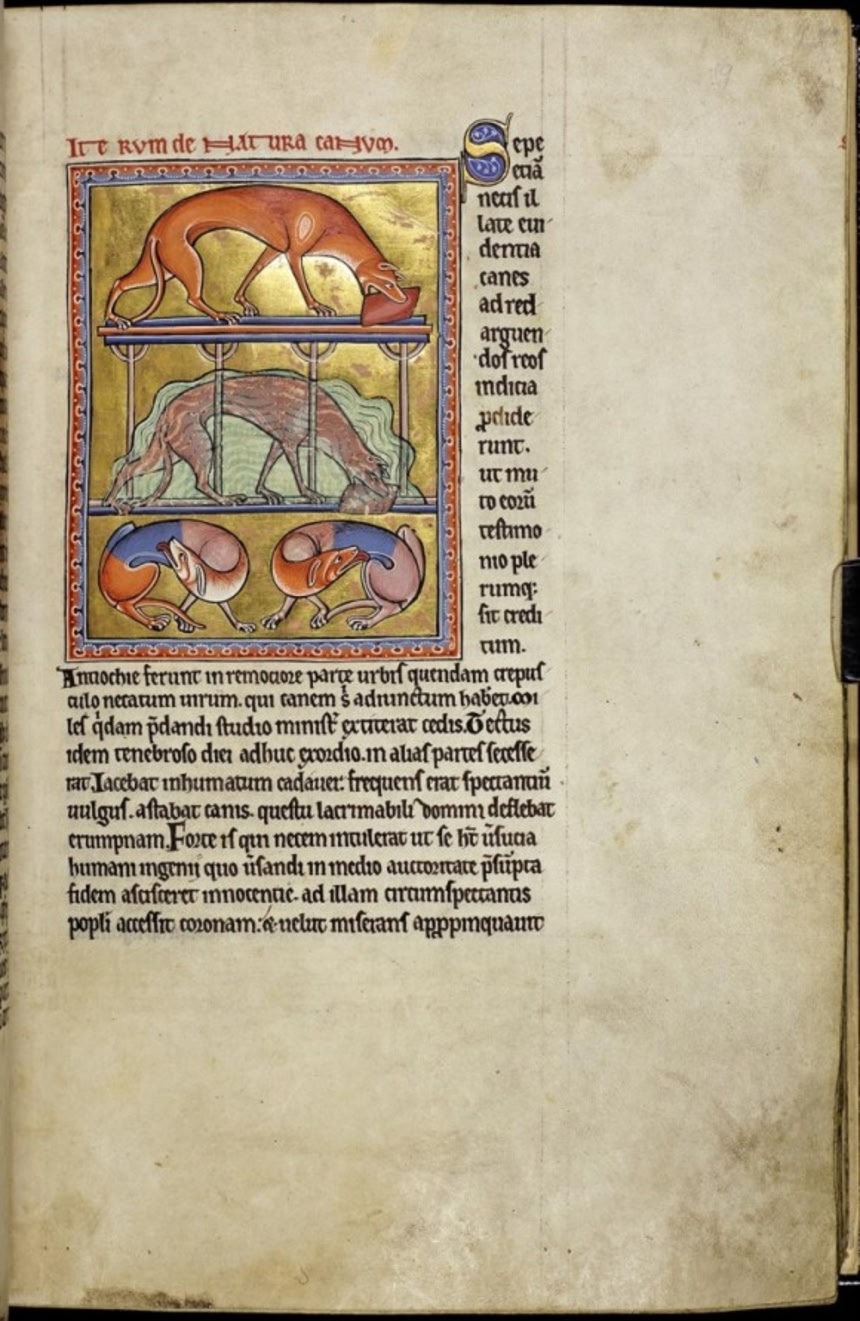 ITE RVM de NATURA CANUM.
Sepe
eciā
necis il
late eui
dentia
canes
ad red
arguen
dos reos
indicia
ꝓdide
runt.
ut mu
to eorū
testimo
nio ple
rumq;
sit credi
tum.
Antiochie ferunt in remociore parte urbis quendam crepus
culo necatum uirum. qui canem s̄ adiunctum haberet. Mi
les q̇dam p̄dandi studio minist͛ extiterat cedis. Tectus
idem tenebroso diei adhuc exordio. in alias partes secesse
rat. Iacebat inhumatum cadauer: frequens erat spectantiū
uulgus. astabat canis. questu lacrimabili domini deflebat
erumpnam. Forte is qui necem intulerat ut se h̄t u͛sucia
humani ingenij quo u͛sandi in medio auctoritate p̄sūpta
fidem ascisceret innocentie. ad illam circumspectantis
popli accessit coronam: & uelut miserans apꝓpinquauit